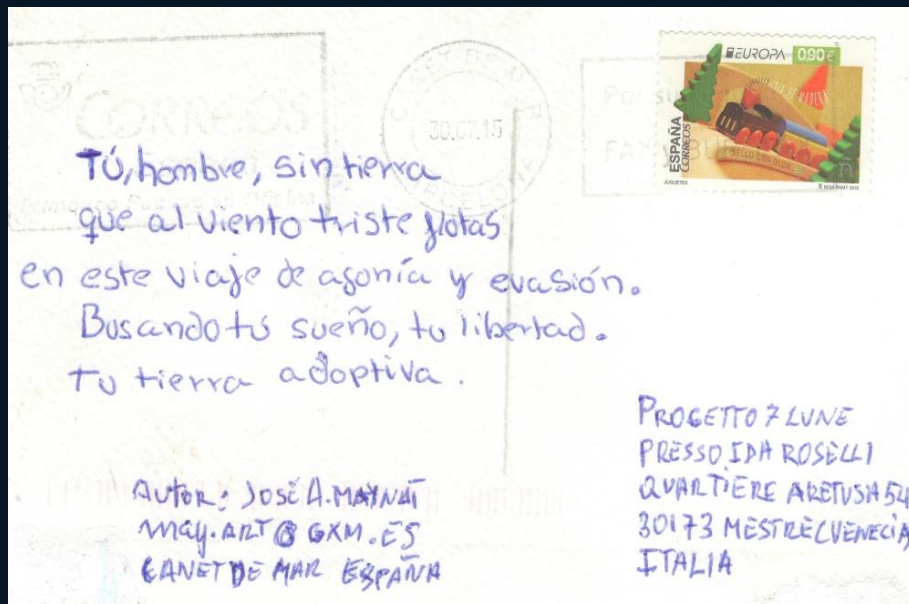 CORREOS
30.07.15
BARCELONA
EUROPA 0,90€
ESPAÑA
CORREOS
JUGUETES
Tú, hombre, sin tierra
que al viento triste flotas
en este viaje de agonía y evasión.
Busando tú sueño, tu libertad.
Tu tierra adoptiva.
AUTOR: JOSÉ A. MAYNAT
may.ART@GXM.ES
CANET DE MAR ESPAÑA
PROGETTO 7 LUNE
PRESSO IDA ROSELLI
QUARTIERE ARETUSA 54
30173 MESTRE(VENECIA
ITALIA